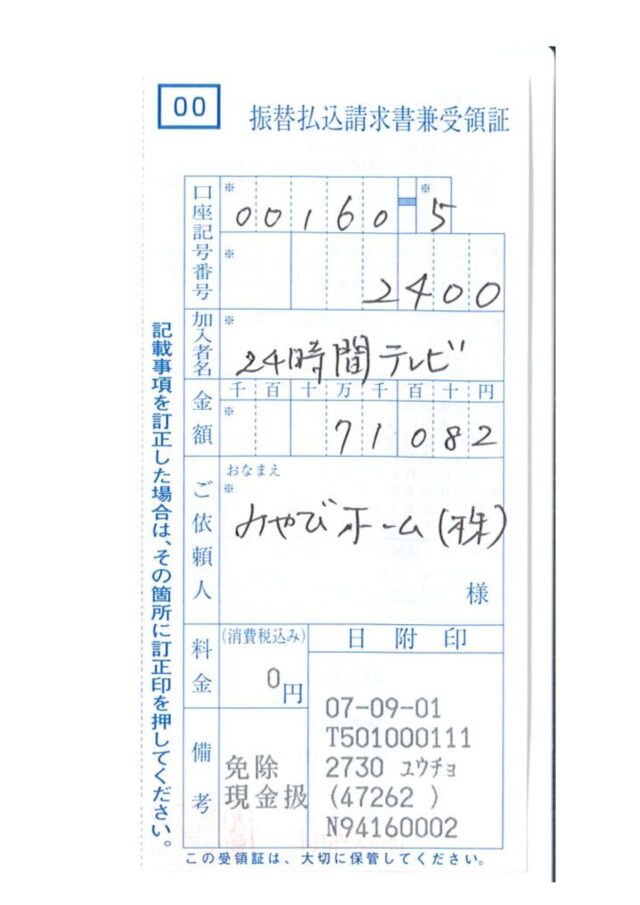 00
振替払込請求書兼受領証
口座記号番号
※ 00160-5 ※
※ 2400
加入者名
※ 24時間テレビ
金額
千百十万千百十円
※ 71082
ご依頼人
おなまえ
※
みやびホーム(株)
様
料金
(消費税込み)
0円
日附印
07-09-01
T501000111
2730 ユウチョ
(47262 )
N94160002
備考
免除
現金扱
記載事項を訂正した場合は、その箇所に訂正印を押してください。
この受領証は、大切に保管してください。